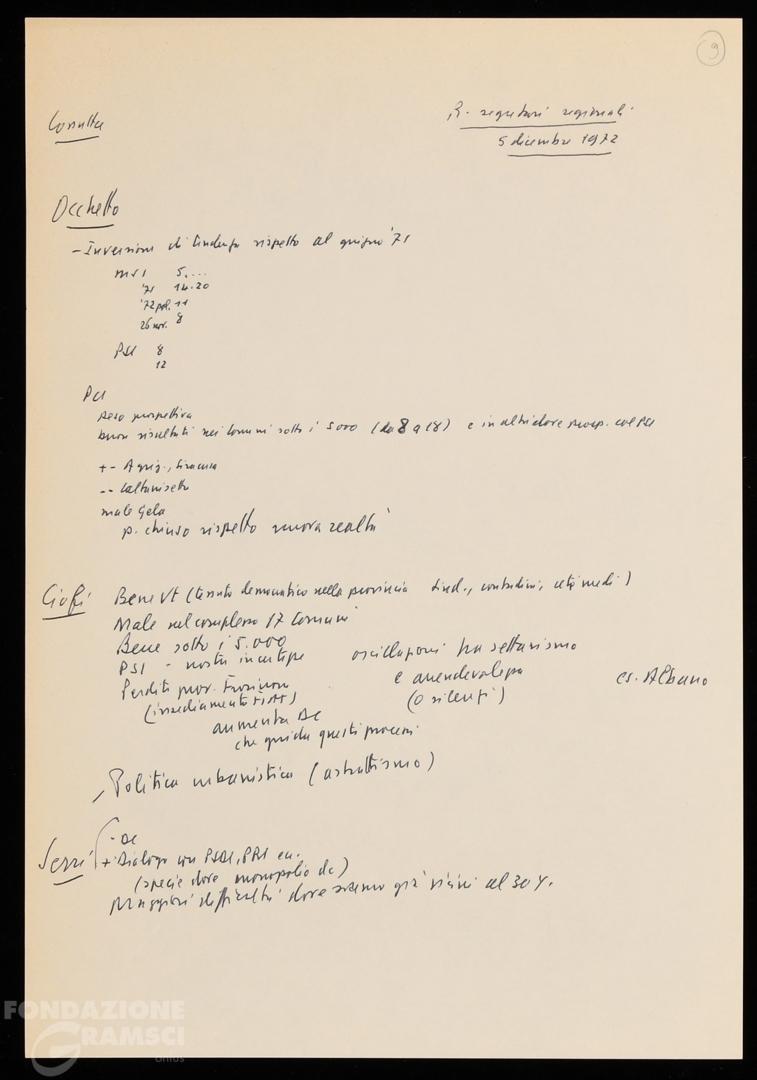 9
Consulta
R. segretari regionali
5 dicembre 1972
Occhetto
- Inversione di tendenza rispetto al giugno '71
MSI 5,...
'71 14-20
'72 pol. 11
26 nov. 8
PSI 8
12
PCI
buoni risultati nei comuni sotto i 5000 (da 8 a 18) e in altri dove col PSI
+- Agrig., Siracusa
-- Caltanisetta
male Gela
p. chiuso rispetto nuova realtà
Ciofi Bene Vt (tessuto democratico nella provincia sind., contadini, ceti medi)
Male nel complesso 17 Comuni
Bene sotto i 5.000
PSI - nostre incertezze oscillazioni tra settarismo
e arrendevolezza
(o silenzi) es. Albano
Perdite prov. Frosinone
(insediamento FIAT)
aumenta DC
che guida questi processi
Politica urbanistica (astrattismo)
Serri - DC
+ Dialogo con PSDI, PRI ecc.
(specie dove monopolio dc)
Maggiori difficoltà dove siamo già vicini al 30%.
FONDAZIONE
GRAMSCI
onlus